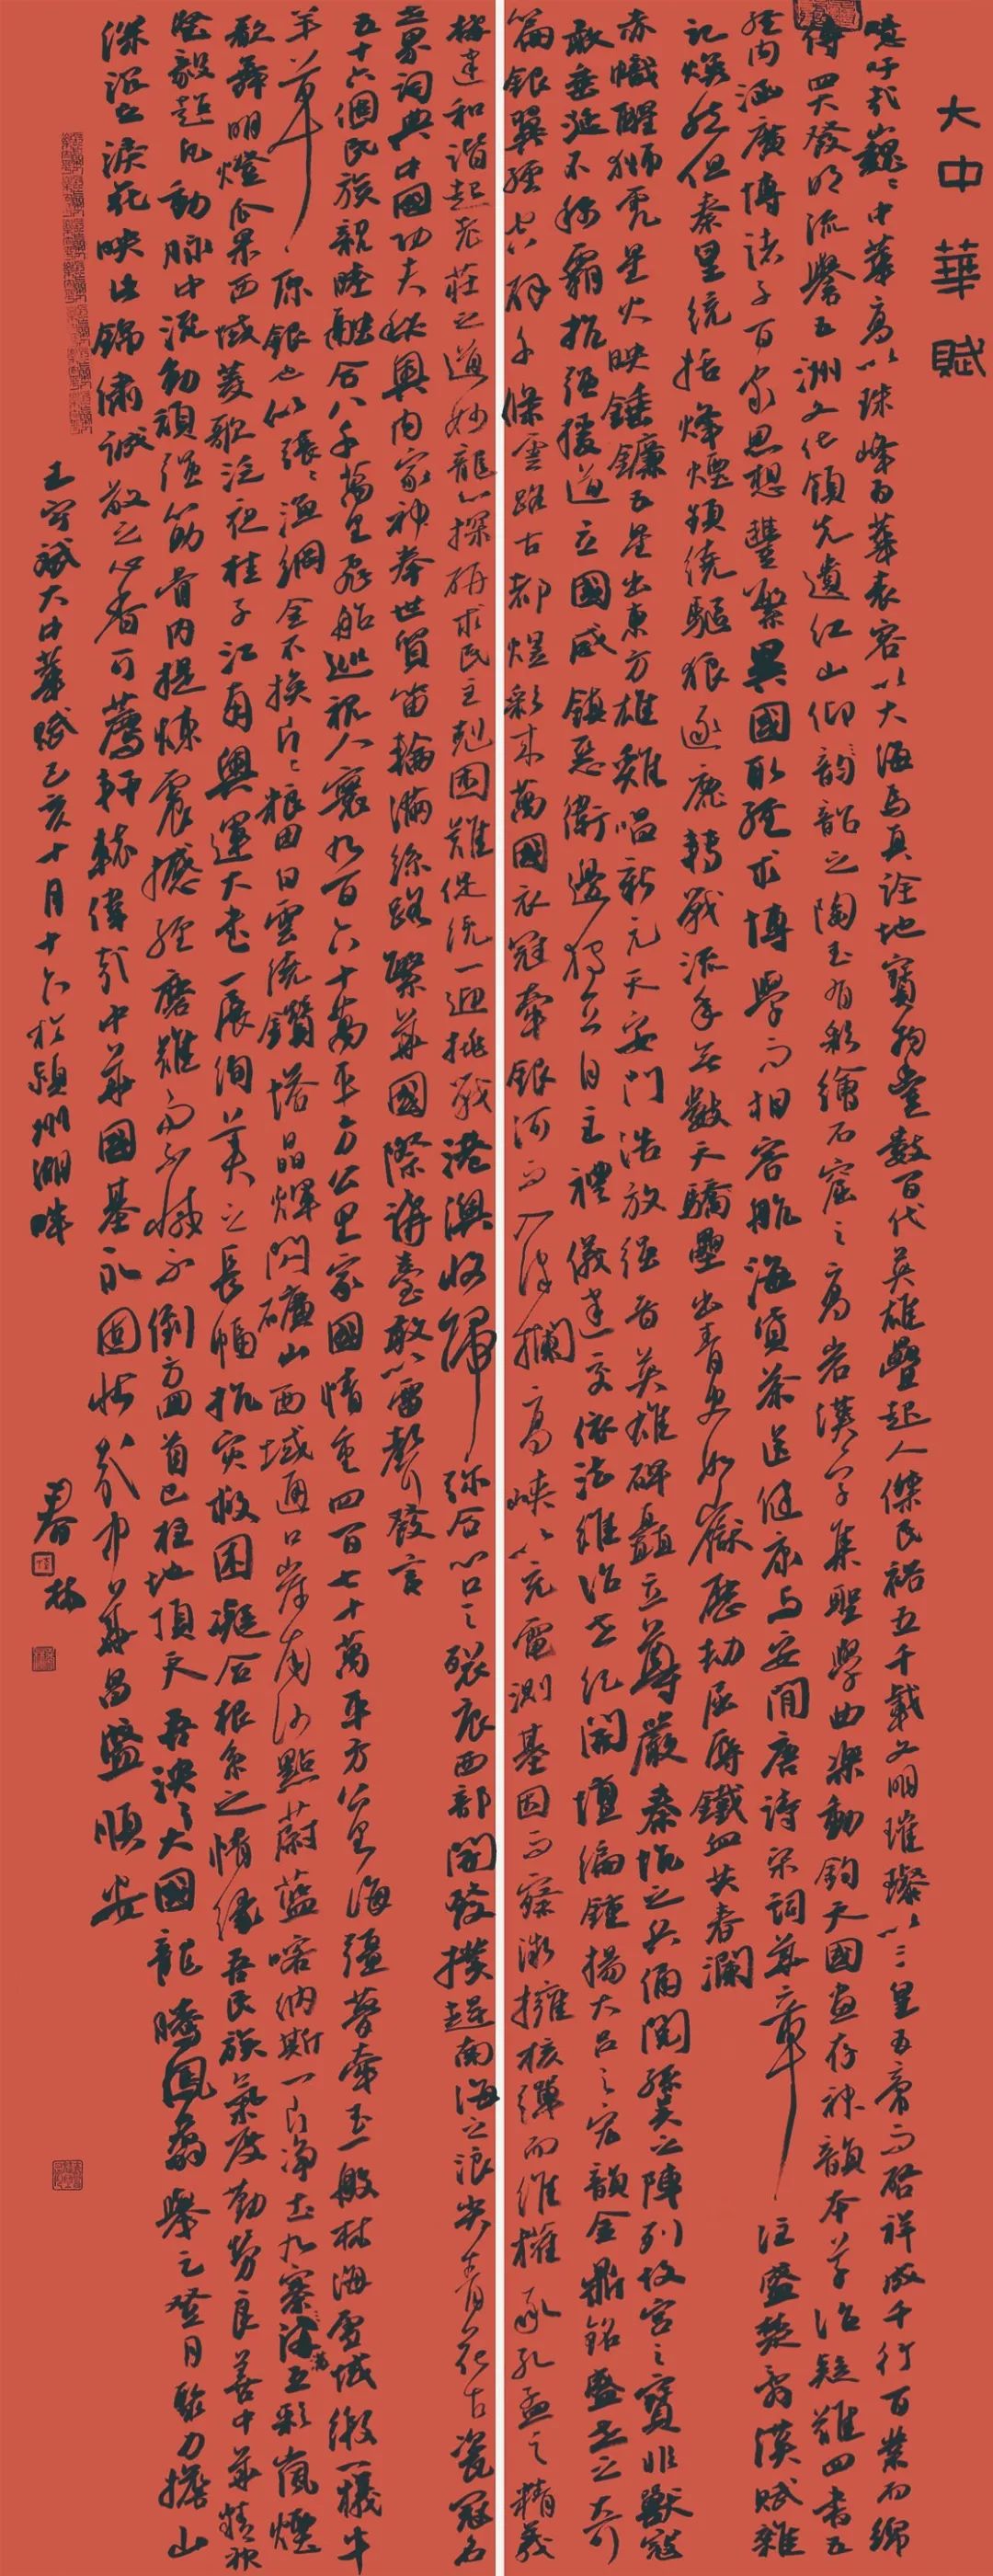 大中華賦
噫吁哉巍巍中華高以珠峰為華表容以大海為真詮地寶物豐數百代英雄疊起人傑民裕五千載文明璀璨以三皇五帝而啟祥成千行百業而綿
傳四大發明流譽五洲文化領先遺紅山仰韶之陶玉有彩繪石窟之高岩漢字集聖學曲樂動鈞天國畫存神韻本草治疑難四書五
經內涵廣博諸子百家思想豐繁異國取經求博學而相容航海貨茶送健康與安閒唐詩宋詞華章注盛楚辭漢賦雜
記煥然但秦皇統括烽煙頻繞驅狼逐鹿轉戰流年無數天驕疊出青史如嶽歷劫屈辱鐵血共春瀾
赤幟醒獅亮星火映錘鐮五星出東方雄雞唱新元天安門浩放強音英雄碑矗立尊嚴秦坑之兵俑閱孫吳之陣列故宮之寶非獸寇
敢垂涎不稱霸抗強援道立國威鎮惡衛邊獨立自主禮儀建交依法維治世紀開壇編鐘揚大呂之宏韻金鼎銘盛世之奇
篇銀翼經天千條雲路古都煜彩來萬國衣冠牽銀河而入洋攔高峽以充電測基因而察微擁核彈而維權承孔孟之精義
構建和諧起老莊之道妙龍心探研求民主克困難促統一迎挑戰港澳收歸彌合心口之裂痕西部開發撲趕南海之浪尖青花古瓷冠名
世界詞典中國功夫秘奧內家神拳世貿笛輪滿絲路繫華國際講臺敢以雷聲發言
五十六個民族親睦融合八千萬里飛船巡視人寰九百六十萬平方公里家國情重四百七十萬平方公里海疆夢牽玉一般林海雪域緞一樣牛
羊草原銀也似張張漁網金不換片片糧田白雲繞鑽塔晶輝閃礦山西域通口岸南沙點蔚藍喀納斯一片淨土九寨溝五彩嵐煙
歌舞明燈瓜果西域菱歌泛夜桂子江南興運大書一展絢美之長幅抗災救困凝合根系之情緣吾民族氣度勤勞良善中華精神
堅毅超凡動脈中流動頑強筋骨內提煉震撼經磨難而不憾不倒方回首已柱地頂天吾泱泱大國龍騰鳳翥舉之登月聚力攜山
深沉之淚花映出錦繡誠敬之心香可薦軒轅偉哉中華國基永固壯哉中華昌盛順安
王守斌大中華賦己亥十月十六於潁州湖畔 春林